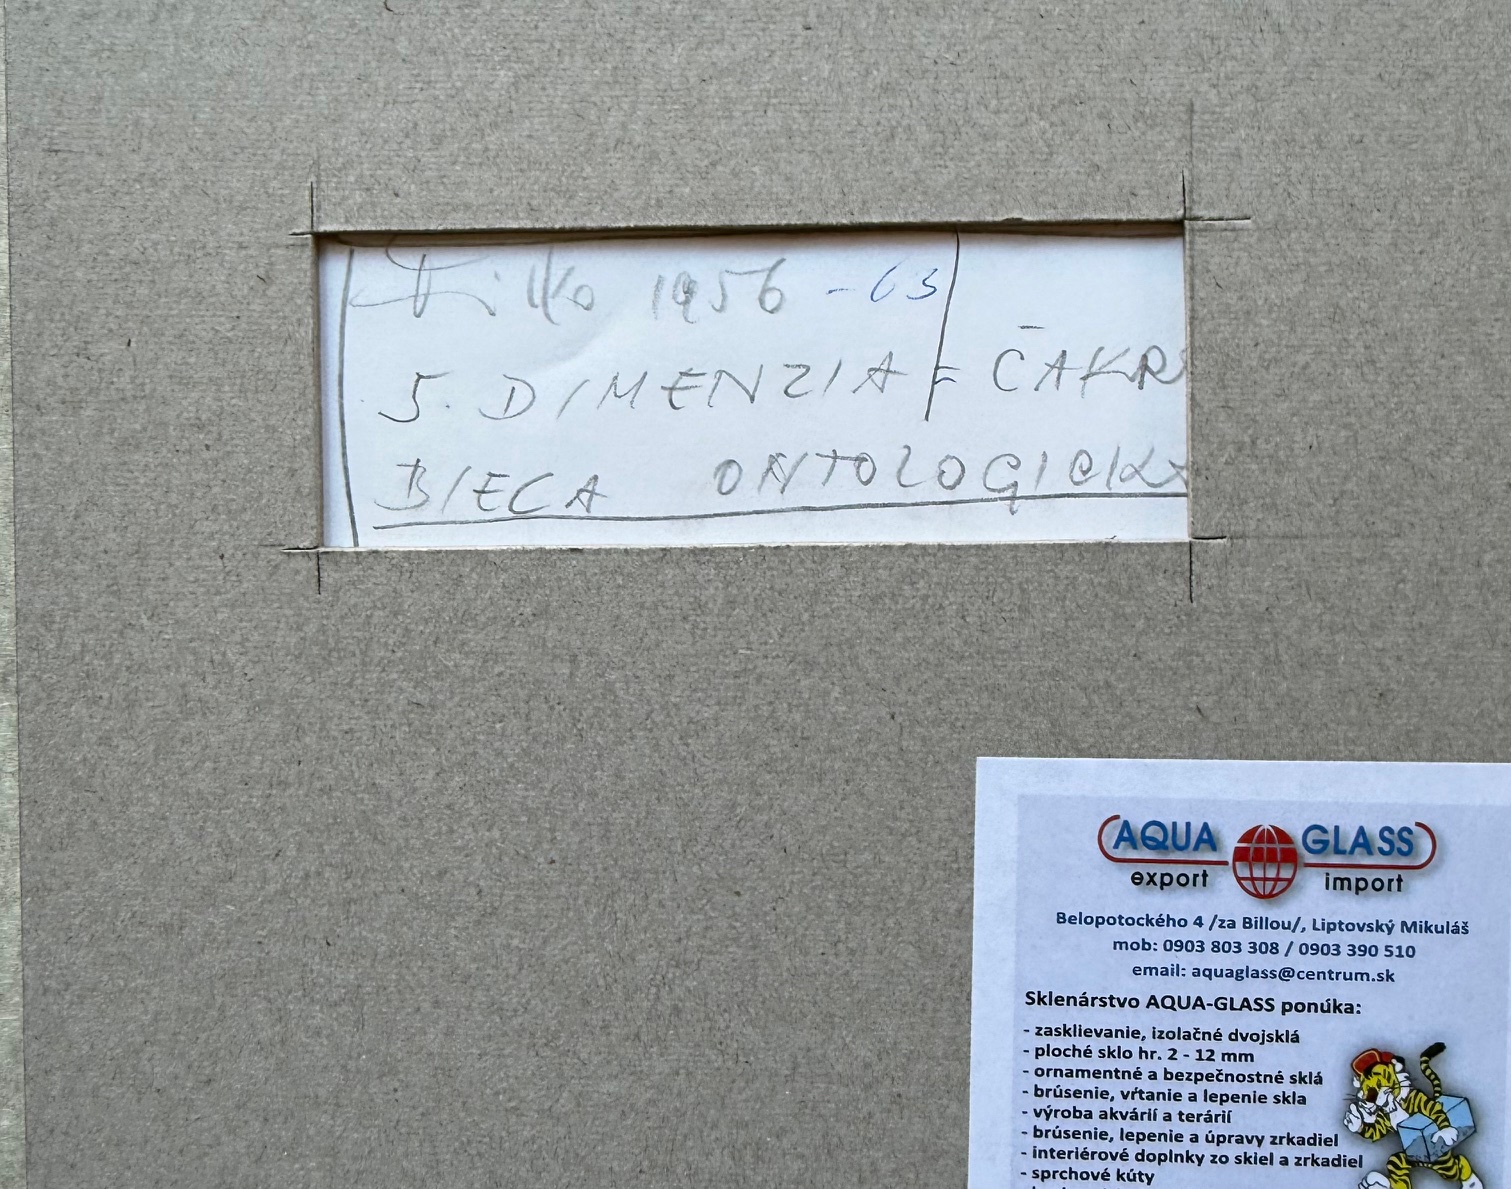 Filko 1956 - 63
5. DIMENZIA = ČAKR
BIECA ONTOLOGICKA
AQUA GLASS
export import
Belopotockého 4 /za Billou/, Liptovský Mikuláš
mob: 0903 803 308 / 0903 390 510
email: aquaglass@centrum.sk
Sklenárstvo AQUA-GLASS ponúka:
- zasklievanie, izolačné dvojsklá
- ploché sklo hr. 2 - 12 mm
- ornamentné a bezpečnostné sklá
- brúsenie, vŕtanie a lepenie skla
- výroba akvárií a terárií
- brúsenie, lepenie a úpravy zrkadiel
- interiérové doplnky zo skiel a zrkadiel
- sprchové kúty